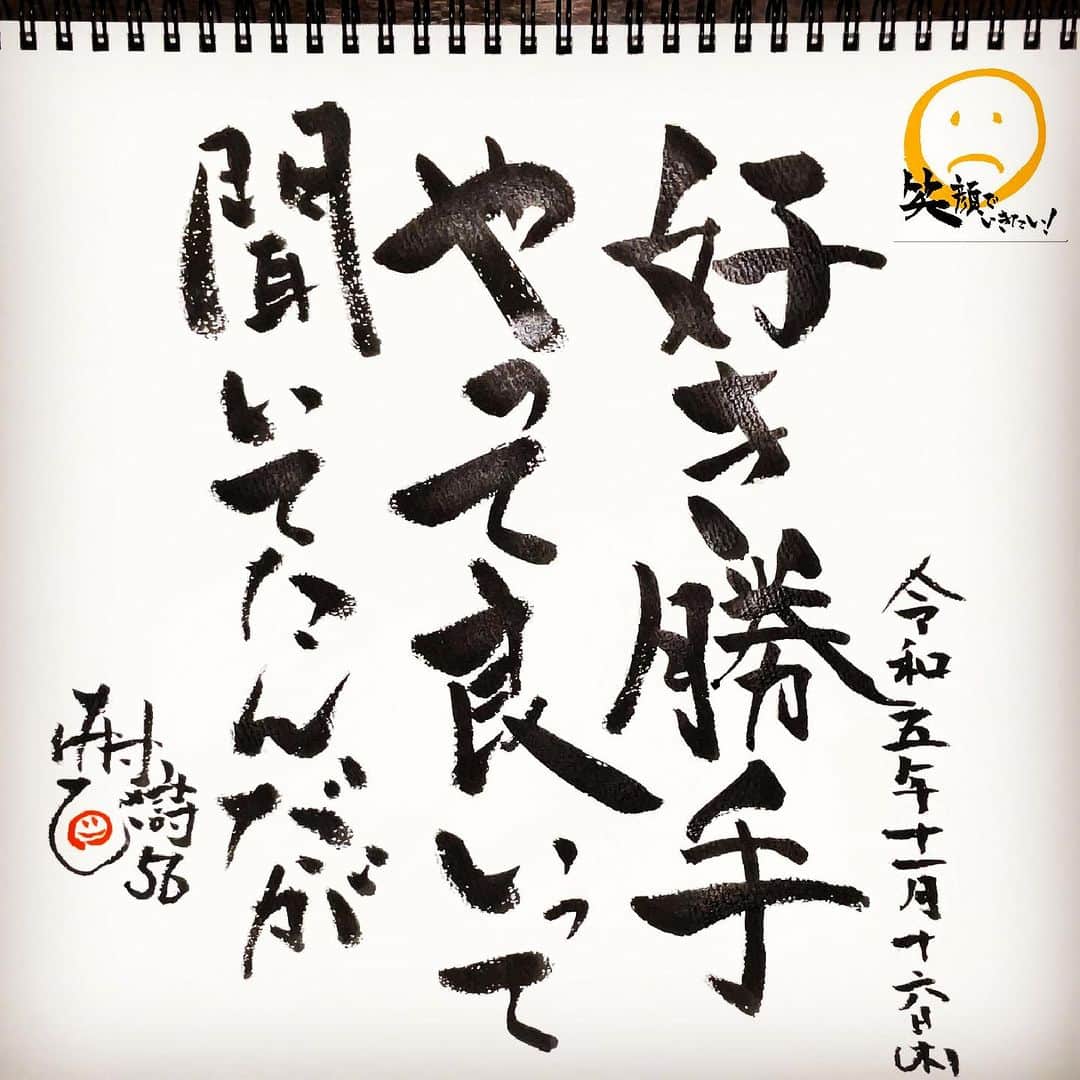 笑顔でいきたい！
令和五年十一月十六日(木)
好き勝手
やって良いって
聞いてたんだが
樹
56